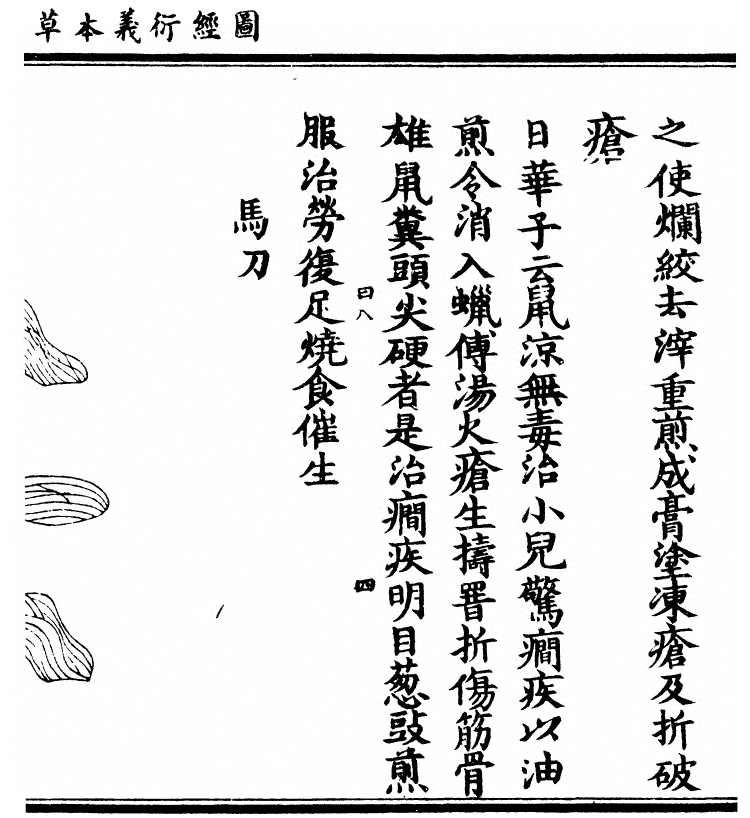 草本義衍經圖
之使爛絞去滓重煎成膏塗凍瘡及折破
瘡
日華子云鼠涼無毒治小兒驚癇疾以油
煎令消入蠟傅湯火瘡生擣罯折傷筋骨
雄鼠糞頭尖硬者是治癇疾明目葱豉煎
曰八
四
服治勞復足燒食催生
馬刀